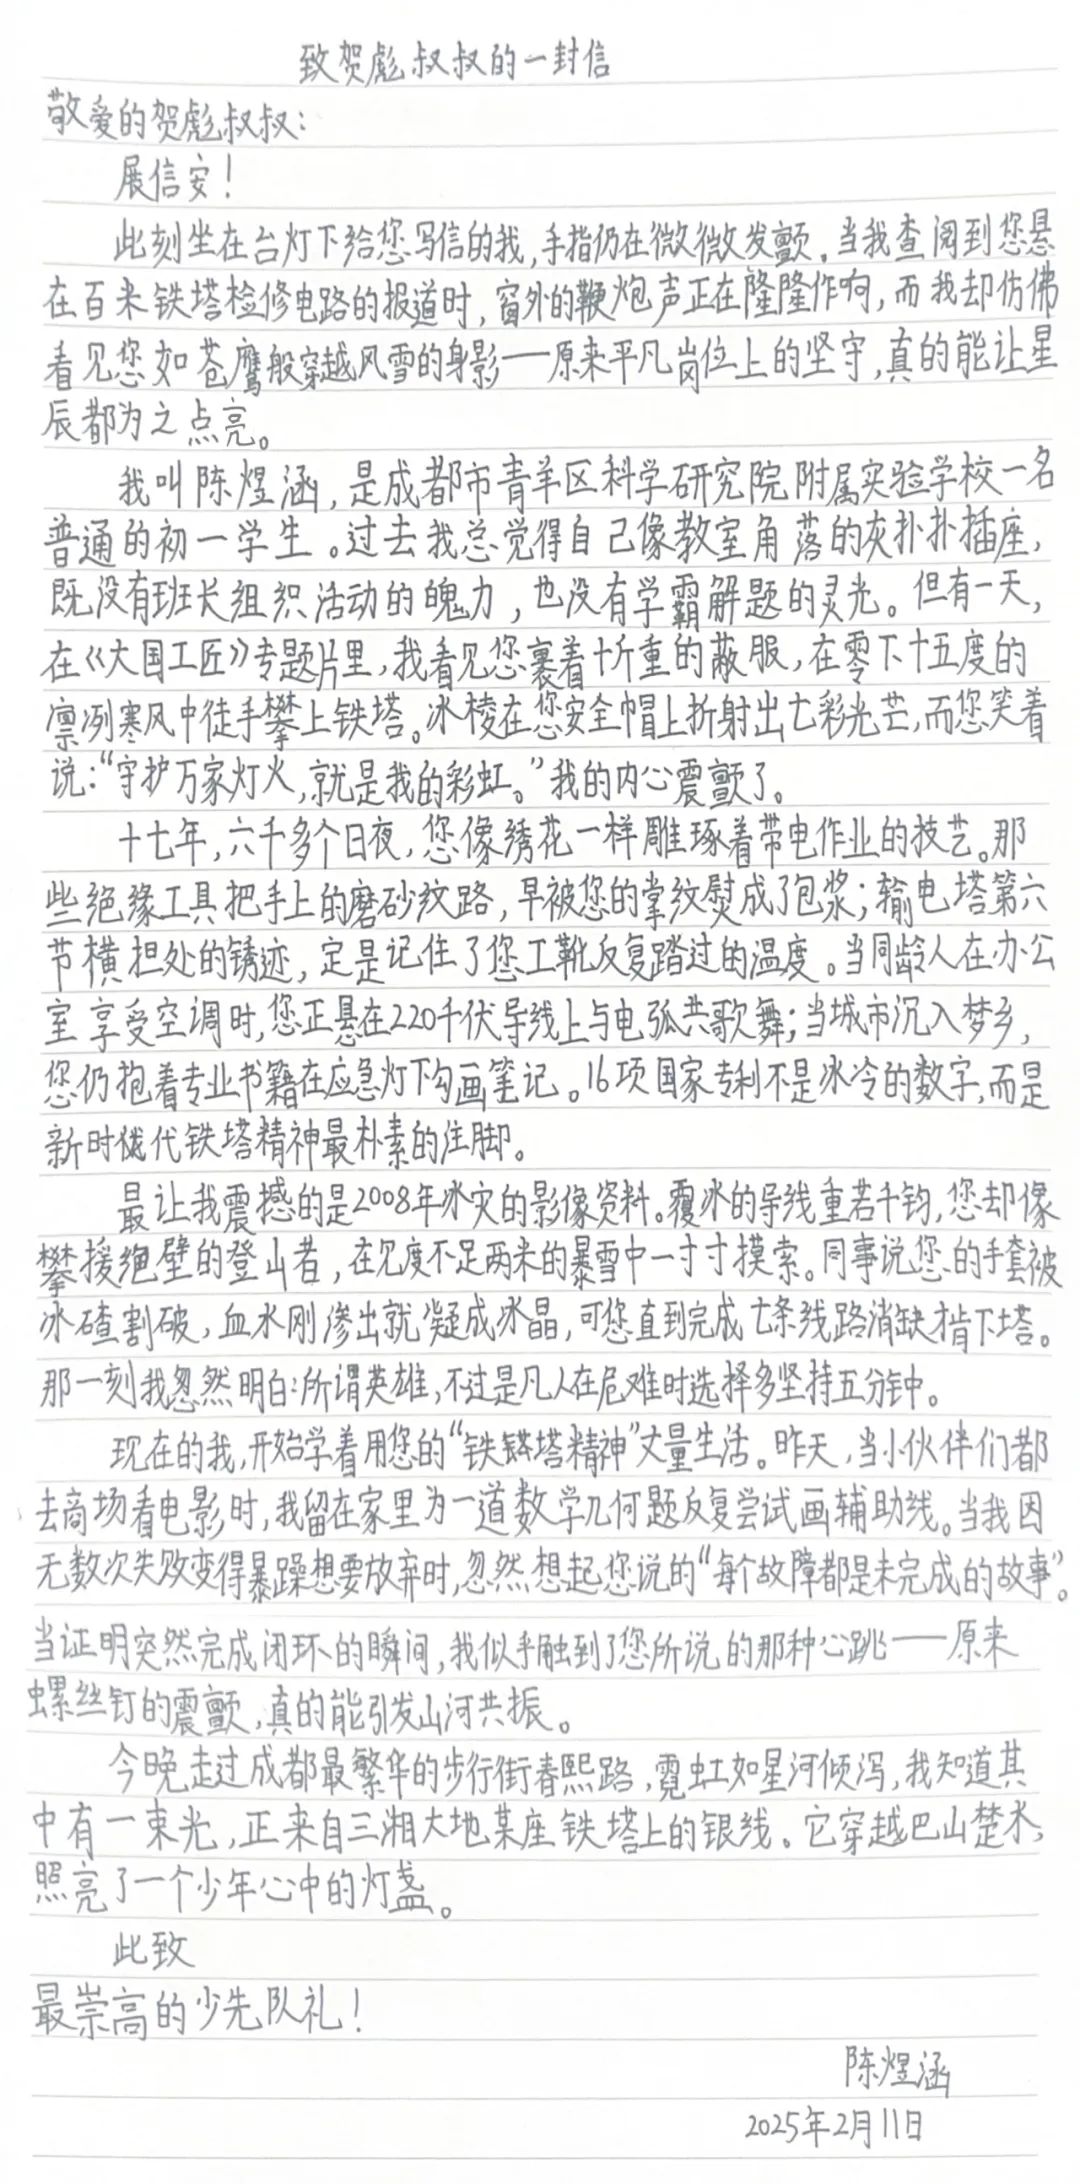 致贺彪叔叔的一封信
敬爱的贺彪叔叔：
展信安！
此刻坐在台灯下给您写信的我，手指仍在微微发颤。当我查阅到您悬
在百米铁塔检修电路的报道时，窗外的鞭炮声正在隆隆作响，而我却仿佛
看见您如苍鹰般穿越风雪的身影——原来平凡岗位上的坚守，真的能让星
辰都为之点亮。
我叫陈煜涵，是成都市青羊区科学研究院附属实验学校一名
普通的初一学生。过去我总觉得自己像教室角落的灰扑扑插座，
既没有班长组织活动的魄力，也没有学霸解题的灵光。但有一天，
在《大国工匠》专题片里，我看见您裹着十斤重的蔽服，在零下十五度的
凛冽寒风中徒手攀上铁塔。冰棱在您安全帽上折射出七彩光芒，而您笑着
说：“守护万家灯火，就是我的彩虹。”我的内心震颤了。
十七年，六千多个日夜，您像绣花一样雕琢着带电作业的技艺。那
些绝缘工具把手上的磨砂纹路，早被您的掌纹熨成了包浆；输电塔第六
节横担处的锈迹，定是记住了您工靴反复踏过的温度。当同龄人在办公
室享受空调时，您正悬在220千伏导线上与电弧共歌舞；当城市沉入梦乡，
您仍抱着专业书籍在应急灯下勾画笔记。16项国家专利不是冰冷的数字，而是
新时代铁塔精神最朴素的注脚。
最让我震撼的是2008年冰灾的影像资料。覆冰的导线重若千钧，您却像
攀援绝壁的登山者，在见度不足两米的暴雪中一寸寸摸索。同事说您的手套被
冰碴割破，血水刚渗出就凝成冰晶，可您直到完成七条线路消缺才肯下塔。
那一刻我忽然明白：所谓英雄，不过是凡人在危难时选择多坚持五分钟。
现在的我，开始学着用您的“铁塔精神”丈量生活。昨天，当小伙伴们都
去商场看电影时，我留在家里为一道数学几何题反复尝试画辅助线。当我因
无数次失败变得暴躁想要放弃时，忽然想起您说的“每个故障都是未完成的故事”。
当证明突然完成闭环的瞬间，我似乎触到了您所说的那种心跳——原来
螺丝钉的震颤，真的能引发山河共振。
今晚走过成都最繁华的步行街春熙路，霓虹如星河倾泻，我知道其
中有一束光，正来自三湘大地某座铁塔上的银线。它穿越巴山楚水，
照亮了一个少年心中的灯盏。
此致
最崇高的少先队礼！
陈煜涵
2025年2月11日